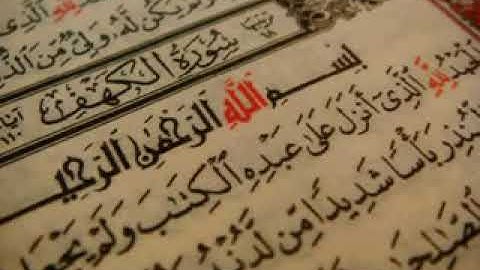 يكن له ولي من الذ
سُورَةُ الْكَهْفِ
بِسْمِ اللَّهِ الرَّحْمَٰنِ الرَّحِي
الْحَمْدُ لِلَّهِ الَّذِي أَنْزَلَ عَلَىٰ عَبْدِهِ الْكِتَابَ وَلَمْ يَجْعَل
لِيُنْذِرَ بَأْسًا شَدِيدًا مِنْ لَدُنْهُ
الصَّالِحَا